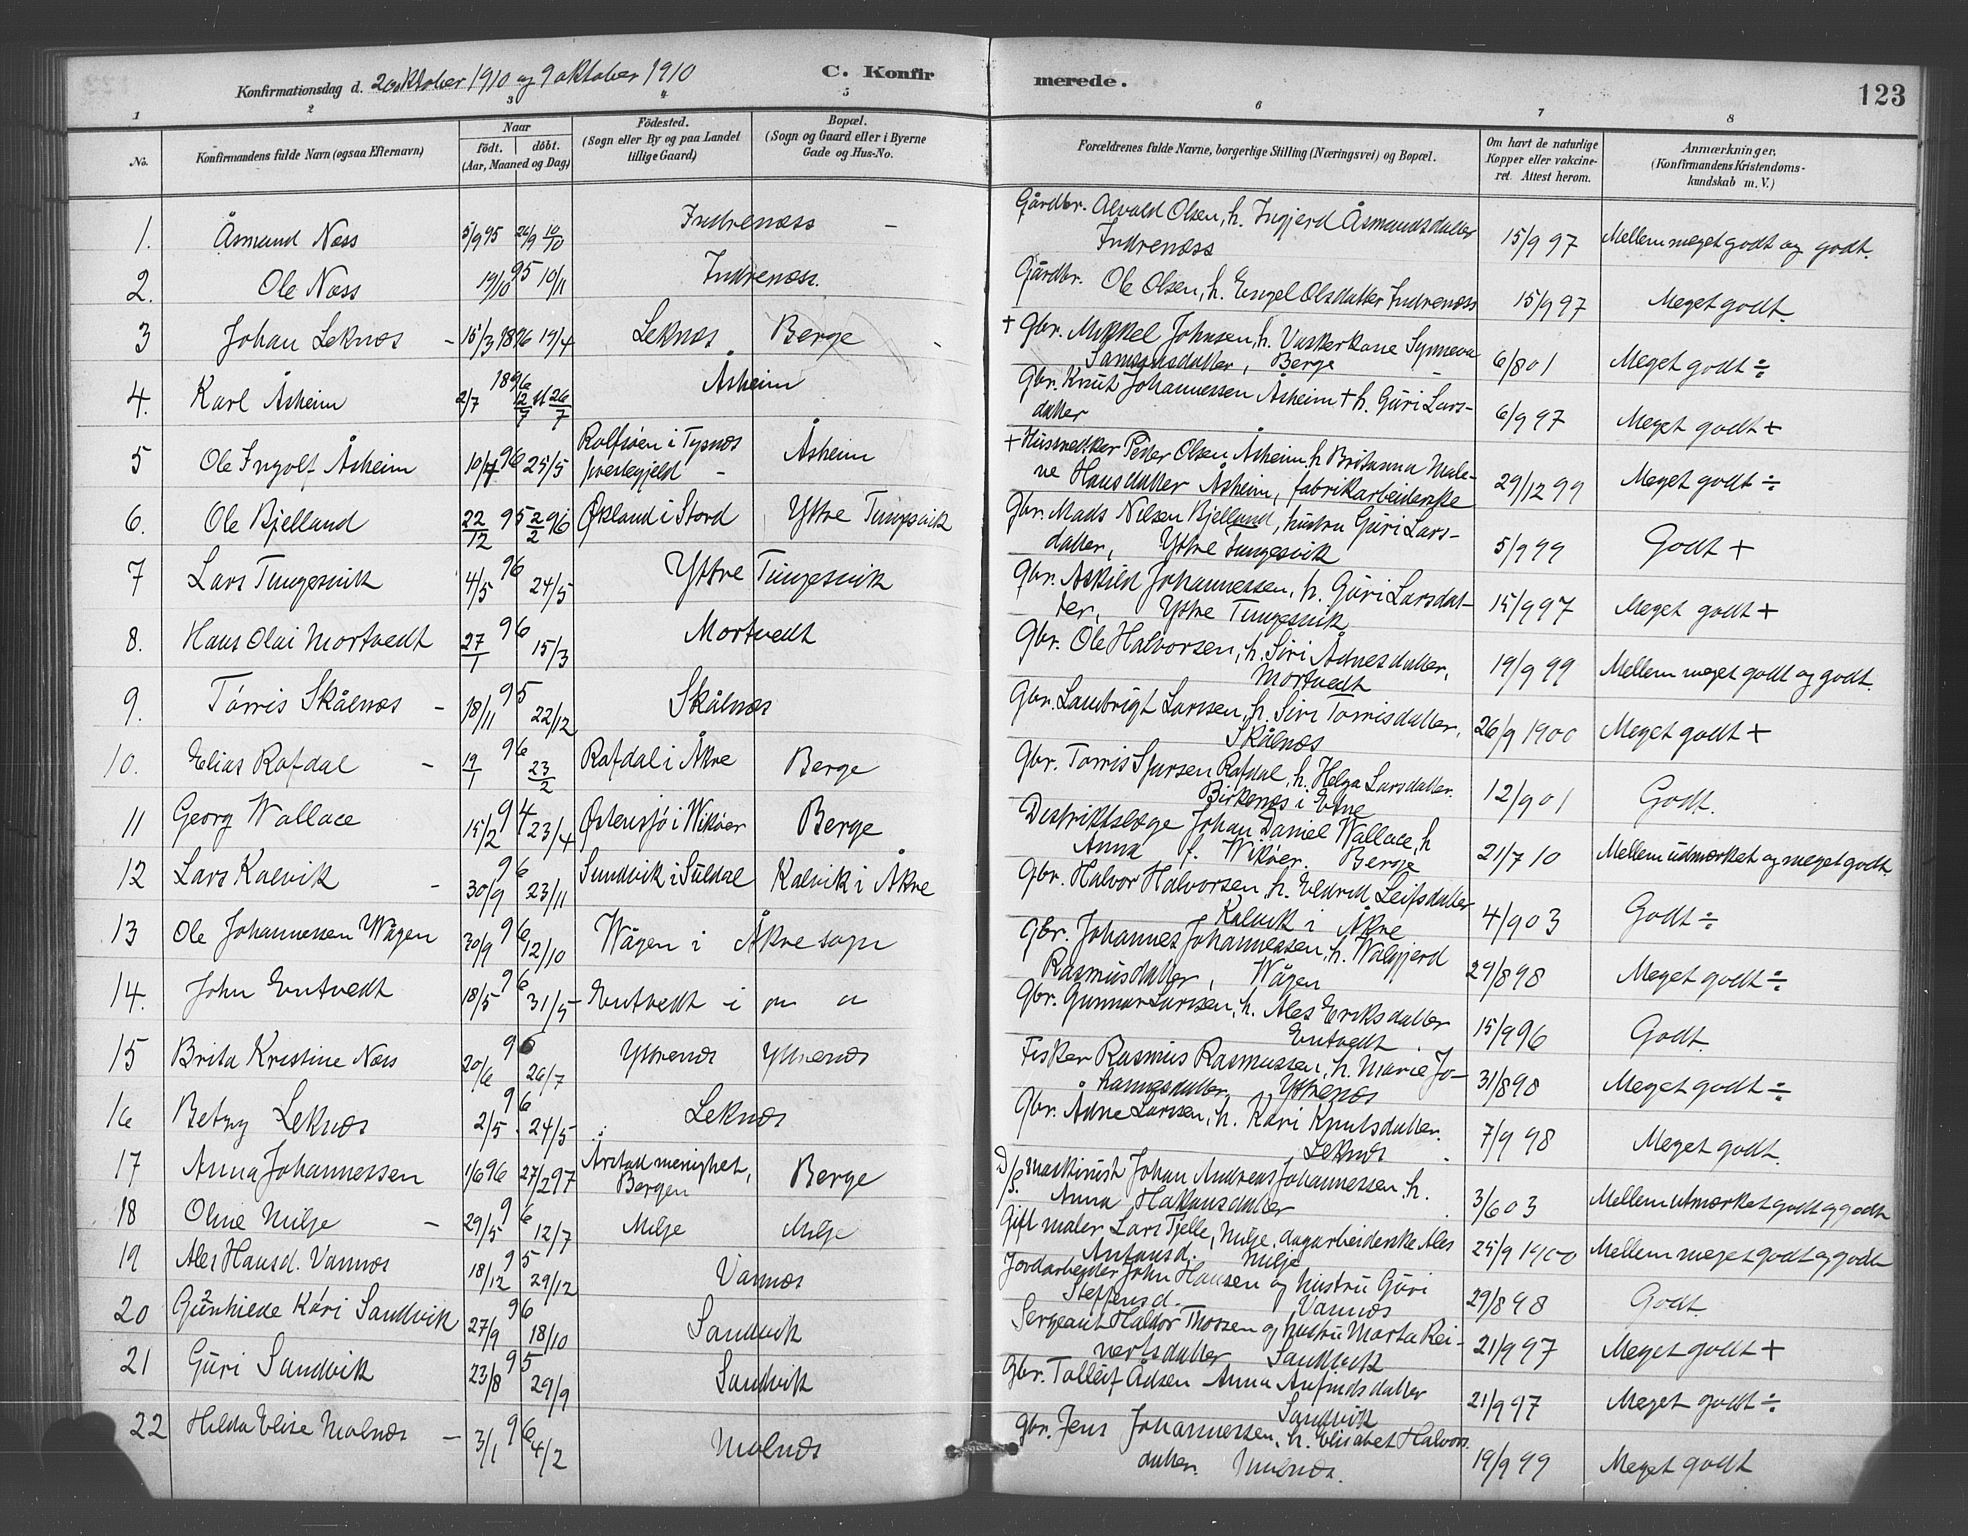 Konfirmationsdag d. 2 oktober 1910 og 9 oktober 1910 C. Konfir merede. 123
1 2 3 4 5 6 7 8
No. Konfirmandens fulde Navn (ogsaa Efternavn) Naar födt. döbt. (Aar, Maaned og Dag) Födested. (Sogn eller By og paa Landet tillige Gaard) Bopæl. (Sogn og Gaard eller i Byerne Gade og Hus-No. Forældrenes fulde Navne, borgerlige Stilling (Næringsvei) og Bopæl. Om havt de naturlige Kopper eller vakcineret. Attest herom. Anmærkninger, (Konfirmandens Kristendomskundskab m. V.)
1. Åsmund Næss 5/9 95 26/9 10/10 Indrenæss - Gårdbr. Alvald Olsen, h. Ingjerd Åsmundsdatter
Indrenæss 15/9 97 Mellem meget godt og godt.
2. Ole Næss 19/10 95 10/11 Indrenæss. Gårdbr. Ole Olsen, h. Engel Olsdatter Indrenæss 15/9 97 Meget godt.
3 Johan Leknæs - 15/3 1896 19/4 Leknæs Berge + Gbr. Mikkel Johnsen, h. Vaskerkone Synneva
Samsonsdatter, Berge 6/8 01 Meget godt ÷
4. Karl Åsheim 2/7 1896 12/7 st 26/7 Åsheim Gbr. Knut Johannessen Åsheim + h. Guri Lars-
datter 6/9 97 Meget godt +
5 Ole Ingolf Åsheim 10/7 96 25/5 Rolfsøen i Tysnæs
prestegjeld - Åsheim + Hussnedker Peder Olsen Åsheim, h Britanna Male-
ne Hansdatter Åsheim, fabrikarbeiderske 29/12 99 Meget godt ÷
6. Ole Bjelland 22/12 95 2/2 96 Økland i Stord Yttre Tungesvik Gbr. Mads Nilsen Bjelland, hustru Guri Lars-
datter, Yttre Tungesvik 5/9 99 Godt +
7 Lars Tungesvik 4/5 96 24/5 Yttre Tungesvik Gbr. Askild Johannessen, h. Guri Larsdat-
ter, Yttre Tungesvik 15/9 97 Meget godt +
8. Hans Olai Mortvedt 27/1 96 15/3 Mortvedt Gbr. Ole Halvorsen, h. Siri Ådnesdatter,
Mortvedt 19/9 99 Mellem meget godt og godt.
9. Tørris Skålnæs - 18/11 95 22/12 Skålnæs Gbr. Lambrigt Larssen, h. Siri Torrisdatter,
Skålnæs 26/9 1900 Meget godt +
10. Elias Rafdal - 19/1 96 23/2 Rafdal i Åkre Berge Gbr. Tørris Sjursen Rafdal, h. Helga Larsdatter.
Birkenæs i Etne 12/9 01 Godt.
11 Georg Wallace 15/2 94 23/4 Østensjø i Wikøer Berge Distriktslæge Johan Daniel Wallace, h
Anna f. Wikøer. Berge 21/7 10 Mellem udmærket og meget godt.
12 Lars Kalvik - 30/9 96 23/11 Sundvik i Suldal Kalvik i Åkre Gbr. Halvor Halvorsen, h. Eldrid Leifsdatter
Kalvik i Åkre 4/9 03 Godt ÷
13 Ole Johannessen Wågen 30/9 96 12/10 Wågen i Åkre sogn Gbr. Johannes Johannessen, h. Walgjerd
Rasmusdatter, Wågen 29/8 98 Meget godt ÷
14. John Entvedt 18/5 96 31/5 Entvedt i " " Gbr. Gunnar Larssen, h. Ales Eriksdatter
Entvedt 15/9 96 Godt.
15 Brita Kristine Næss 20/6 96 26/7 Yttrenæs Yttrenæs Fisker Rasmus Rasmussen, h. Marie Jo-
hannesdatter, Yttrenæs 31/8 98 Meget godt ÷
16 Betzy Leknæs 2/5 96 24/5 Leknæs Gbr. Ådne Larssen, h. Kari Knutsdatter.
Leknæs 7/9 98 Meget godt.
17 Anna Johannessen 1/6 96 27/2 97 Årstad menighet,
Bergen Berge D/S. maskinist Johan Andreas Johannessen, h.
Anna Hakonsdatter 3/6 03 Mellem utmærket godt og godt
18 Oline Milje - 29/5 96 12/7 Milje Milje Gift maler Lars Tjelle, Milje. dagarbeiderske Ales
Antonsd. Milje 25/9 1900 Mellem meget godt og godt
19 Ales Hansd. Vannes 18/12 95 29/12 Vannes Jordarbeider John Hansen og hustru Guri
Steffensd. Vannes 29/8 98 Godt.
20 Gunhilde Kari Sandvik 27/9 96 18/10 Sandvik Sergeant Haldor Thossen og hustru Marta Rei-
nertsdatter Sandvik 21/9 97 Meget godt +
21 Guri Sandvik 23/8 95 29/9 Sandvik Gbr. Tolleif Ådsen Anna Anfindsdatter
Sandvik 21/9 97 Meget godt ÷
22 Helda Elise Molnæs - 3/1 96 4/2 Molnæs Gbr. Jens Johannessen, h. Elisabet Halvors
datter. Molnæs. 19/9 99 Meget godt